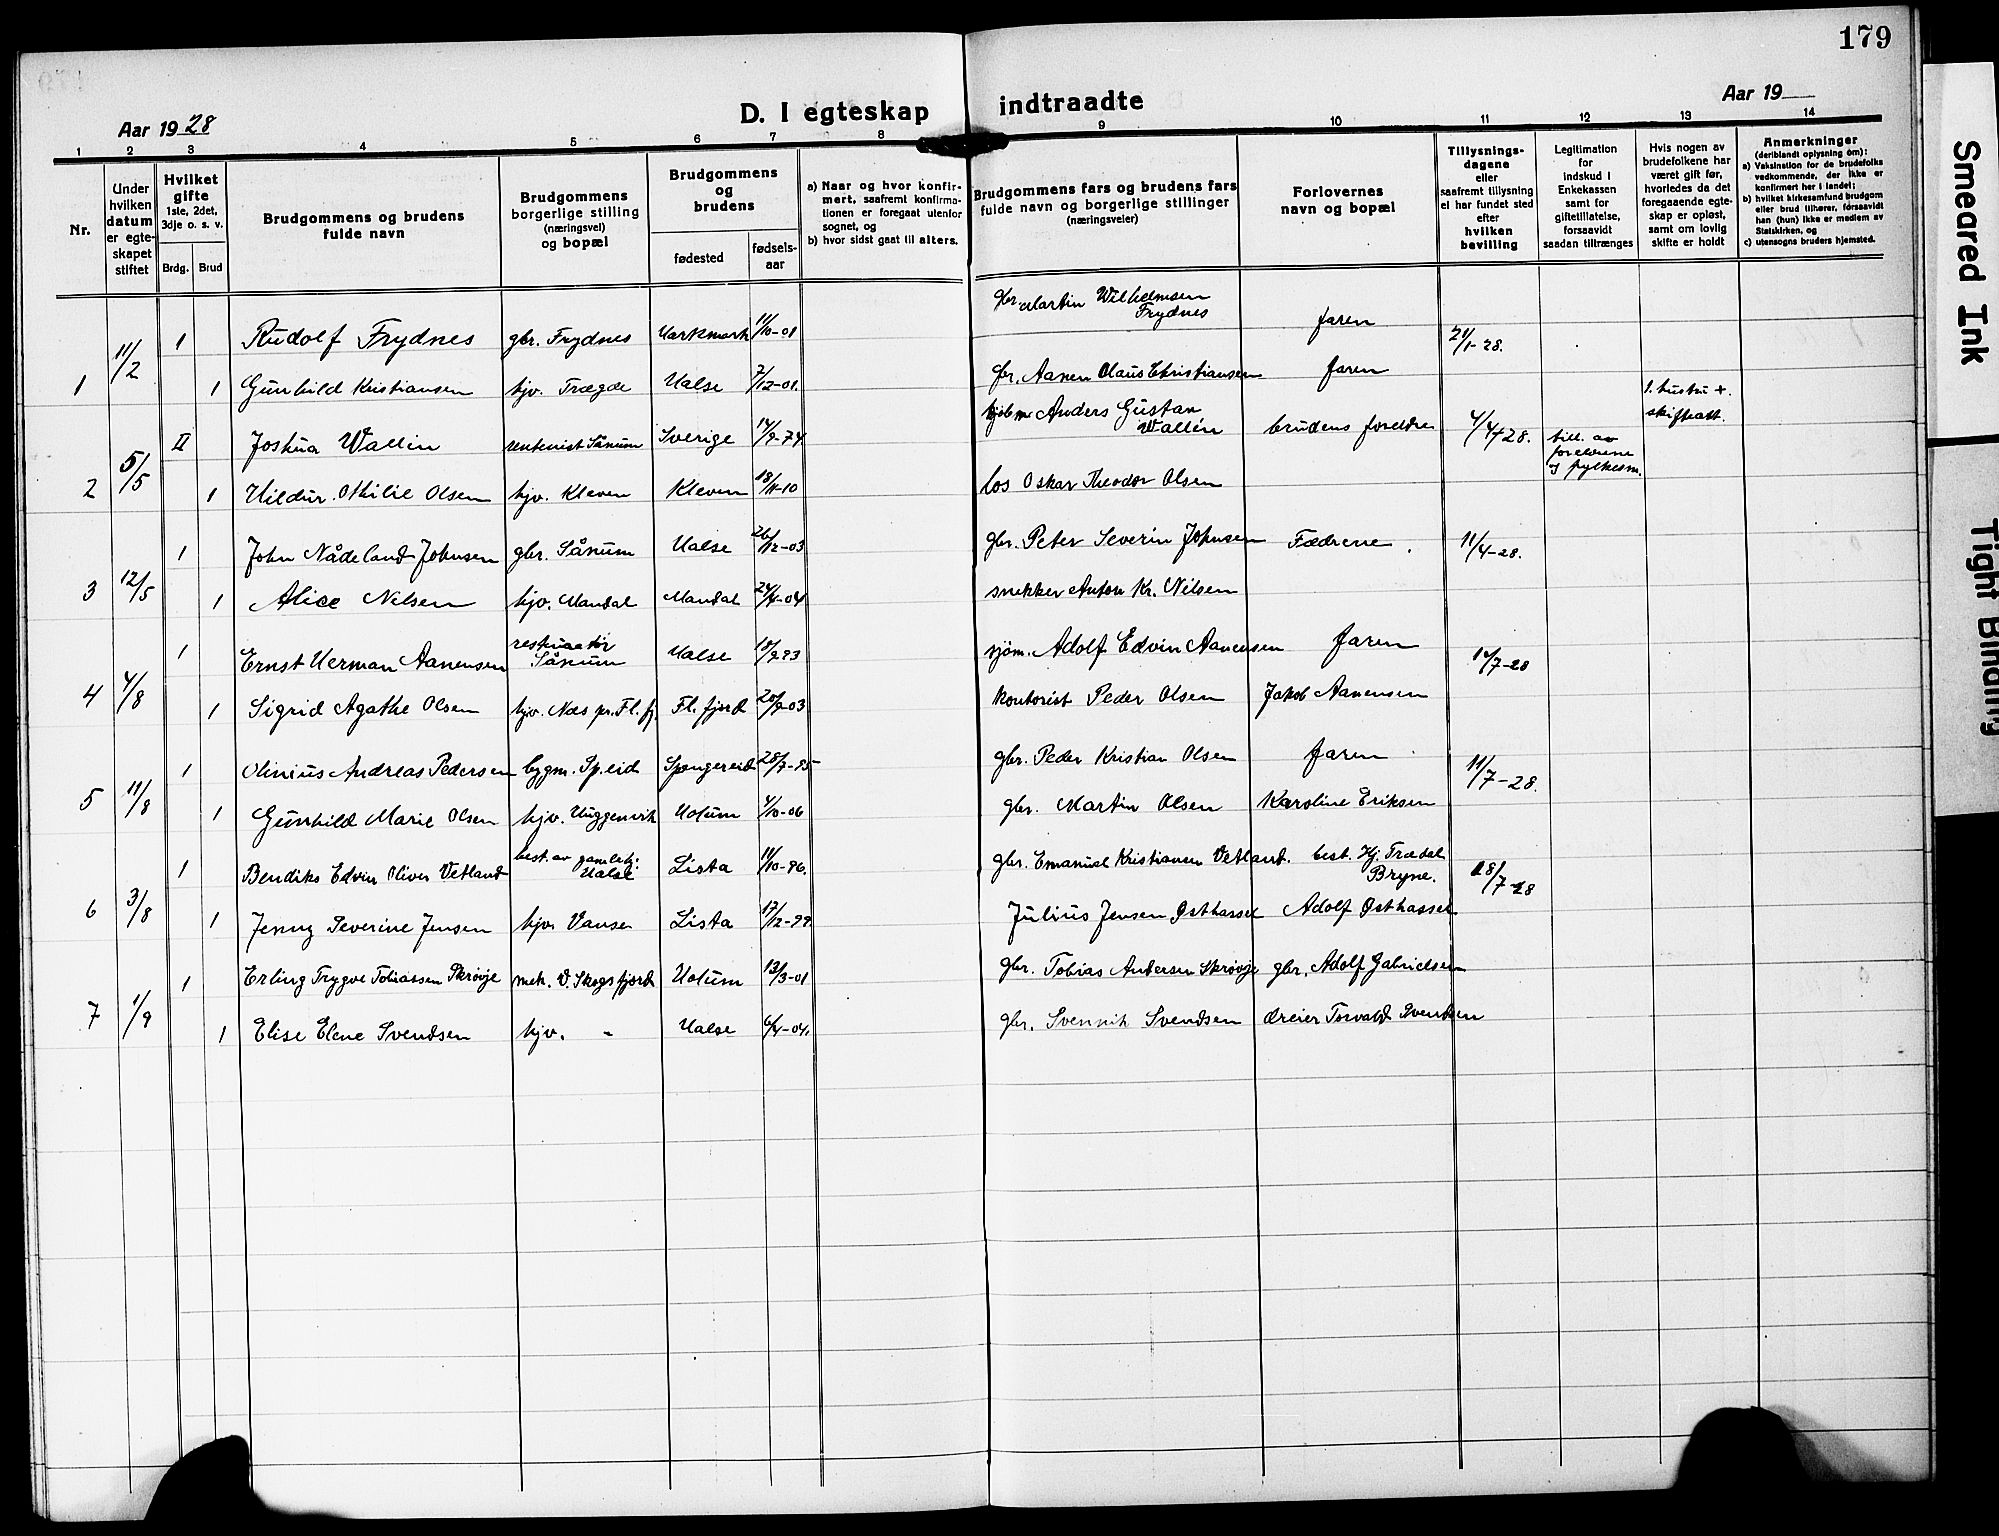 179
D. I egteskap indtraadte
Aar 1928
Aar 19
1 2 3 4 5 6 7 8 9 10 11 12 13 14
Nr.
Under hvilken datum er egteskapet stiftet
Hvilket gifte 1ste, 2det, 3dje o. s. v.
Brdg. Brud
Brudgommens og brudens fulde navn
Brudgommens borgerlige stilling (næringsvei) og bopæl
Brudgommens og brudens
fødested
fødselsaar
a) Naar og hvor konfirmert, saafremt konfirmationen er foregaat utenfor sognet, og
b) hvor sidst gaat til alters.
Brudgommens fars og brudens fars fulde navn og borgerlige stillinger (næringsveier)
Forlovernes navn og bopæl
Tillysningsdagene eller saafremt tillysning ei har fundet sted efter hvilken bevilling
Legitimation for indskud i Enkekassen samt for giftetillatelse, forsaavidt saadan tiltrænges
Hvis nogen av brudefolkene har været gift før, hvorledes da det foregaaende egteskap er opløst, samt om lovlig skifte er holdt
Anmerkninger (deriblandt oplysning om):
a) Vaksination for de brudefolks vedkommende, der ikke er konfirmert her i landet;
b) hvilket kirkesamfund brudgom eller brud tilhører, forsaavidt han (hun) ikke er medlem av Statskirken, og
c) utensogns bruders hjemsted.
1 11/2 1 Rudolf Frydnes gbr. Frydnes Harkmark 11/10-01 gbr. Martin Wilhelmsen Frydnes faren 21/1-28.
1 Gunhild Kristiansen hjv. Trægde Halse 7/12-01. Aanen Olaus Christiansen faren
2 5/5 II Joshua Wallin Sånum Sverige 14/9-74 Anders Gustav Wallin brudens foreldre 4/4-28. till. av foreldrene og fylkesm. 1. hustru +. skifteatt.
1 Hildur Othilie Olsen hjv. Kleven Kleven 18/11-10 los Oskar Theodor Olsen
3 12/5 1 John Nådeland Johnsen gbr. Sånum Halse 26/12-03 gbr. Peter Severin Johnsen Fædrene. 11/4-28.
1 Alice Nilsen hjv. Mandal Mandal 24/4-04 snekker Anton Kr. Nilsen
4 4/8 1 Ernst Herman Aanensen Sånum Halse 18/9 93 sjøm. Adolf Edvin Aanensen faren 14/7-28
1 Sigrid Agathe Olsen hjv. Næs pr. Fl. fj. Fl. fjord 20/9-03 kontorist Peder Olsen Jakob Aanensen
5 11/8 1 Olinius Andreas Pedersen bygm. Sp. eid Spangereid 28/7-95 gbr. Peder Kristian Olsen faren 11/7-28.
1 Gunhild Marie Olsen hjv. Huggenvik Holum 4/10-06 gbr. Martin Olsen Karoline Eriksen
6 3/8 1 Bendiks Edvin Oliver Vetland best. av gamleh. Halse Lista 11/10-96. gbr. Emanuel Kristiansen Vetland. best. Hj. Trædal Bryne. 18/7-28
1 Jenny Severine Jensen hjv. Vanse Lista 17/12-99. Julius Jensen Østhassel Adolf Østhassel
7 1/9 1 Erling Trygve Tobiassen Skrøvje mek. V. Skogsfjord Holum 13/3-01 gbr. Tobias Andersen Skrøvje gbr. Adolf Gabrielsen
1 Elise Elene Svendsen hjv. " Halse 6/4-04. gbr. Svennik Svendsen dreier Torvald Svendsen
Smeared Ink
Tight Binding